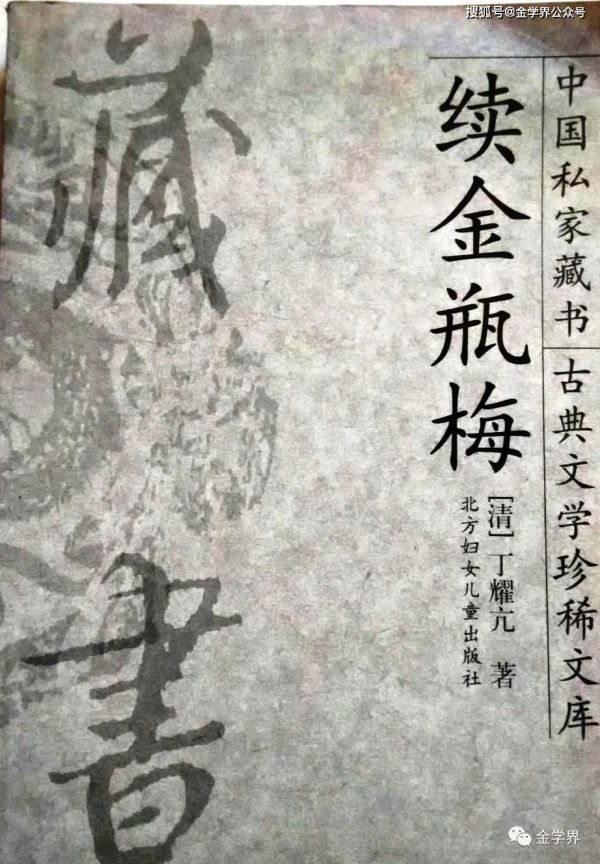 搜狐号@金学界公众号
中国私家藏书 古典文学珍稀文库
续金瓶梅
[清]丁耀亢 著
北方妇女儿童出版社
藏書
金学界